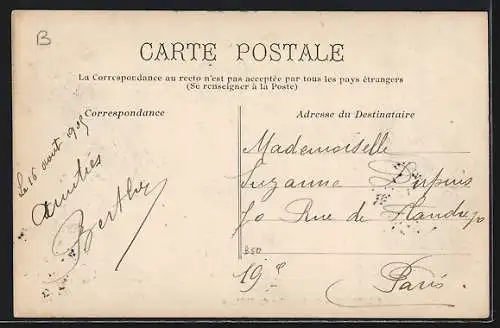 B
CARTE POSTALE
La Correspondance au recto n'est pas acceptée par tous les pays étrangers
(Se renseigner à la Poste)
Correspondance
Adresse du Destinataire
Le 16 août 1905
Amitiés
Berthe
Mademoiselle
Suzanne Dupuis
70 Rue de Flandre
B50
19e
Paris.